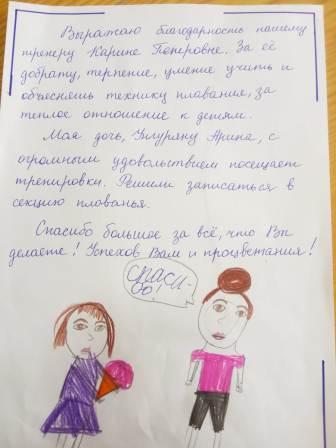 Выражаю благодарность нашему
тренеру Карине Петровне. За её
доброту, терпение, умение учить и
объяснять технику плавания, за
теплое отношение к детям.
Моя дочь, Арина, с
огромным удовольствием посещает
тренировки. Решили записаться в
секцию плованья.
Спасибо большое за всё, что Вы
делаете! Успехов Вам и процветания!
СПАСИ-
БО!